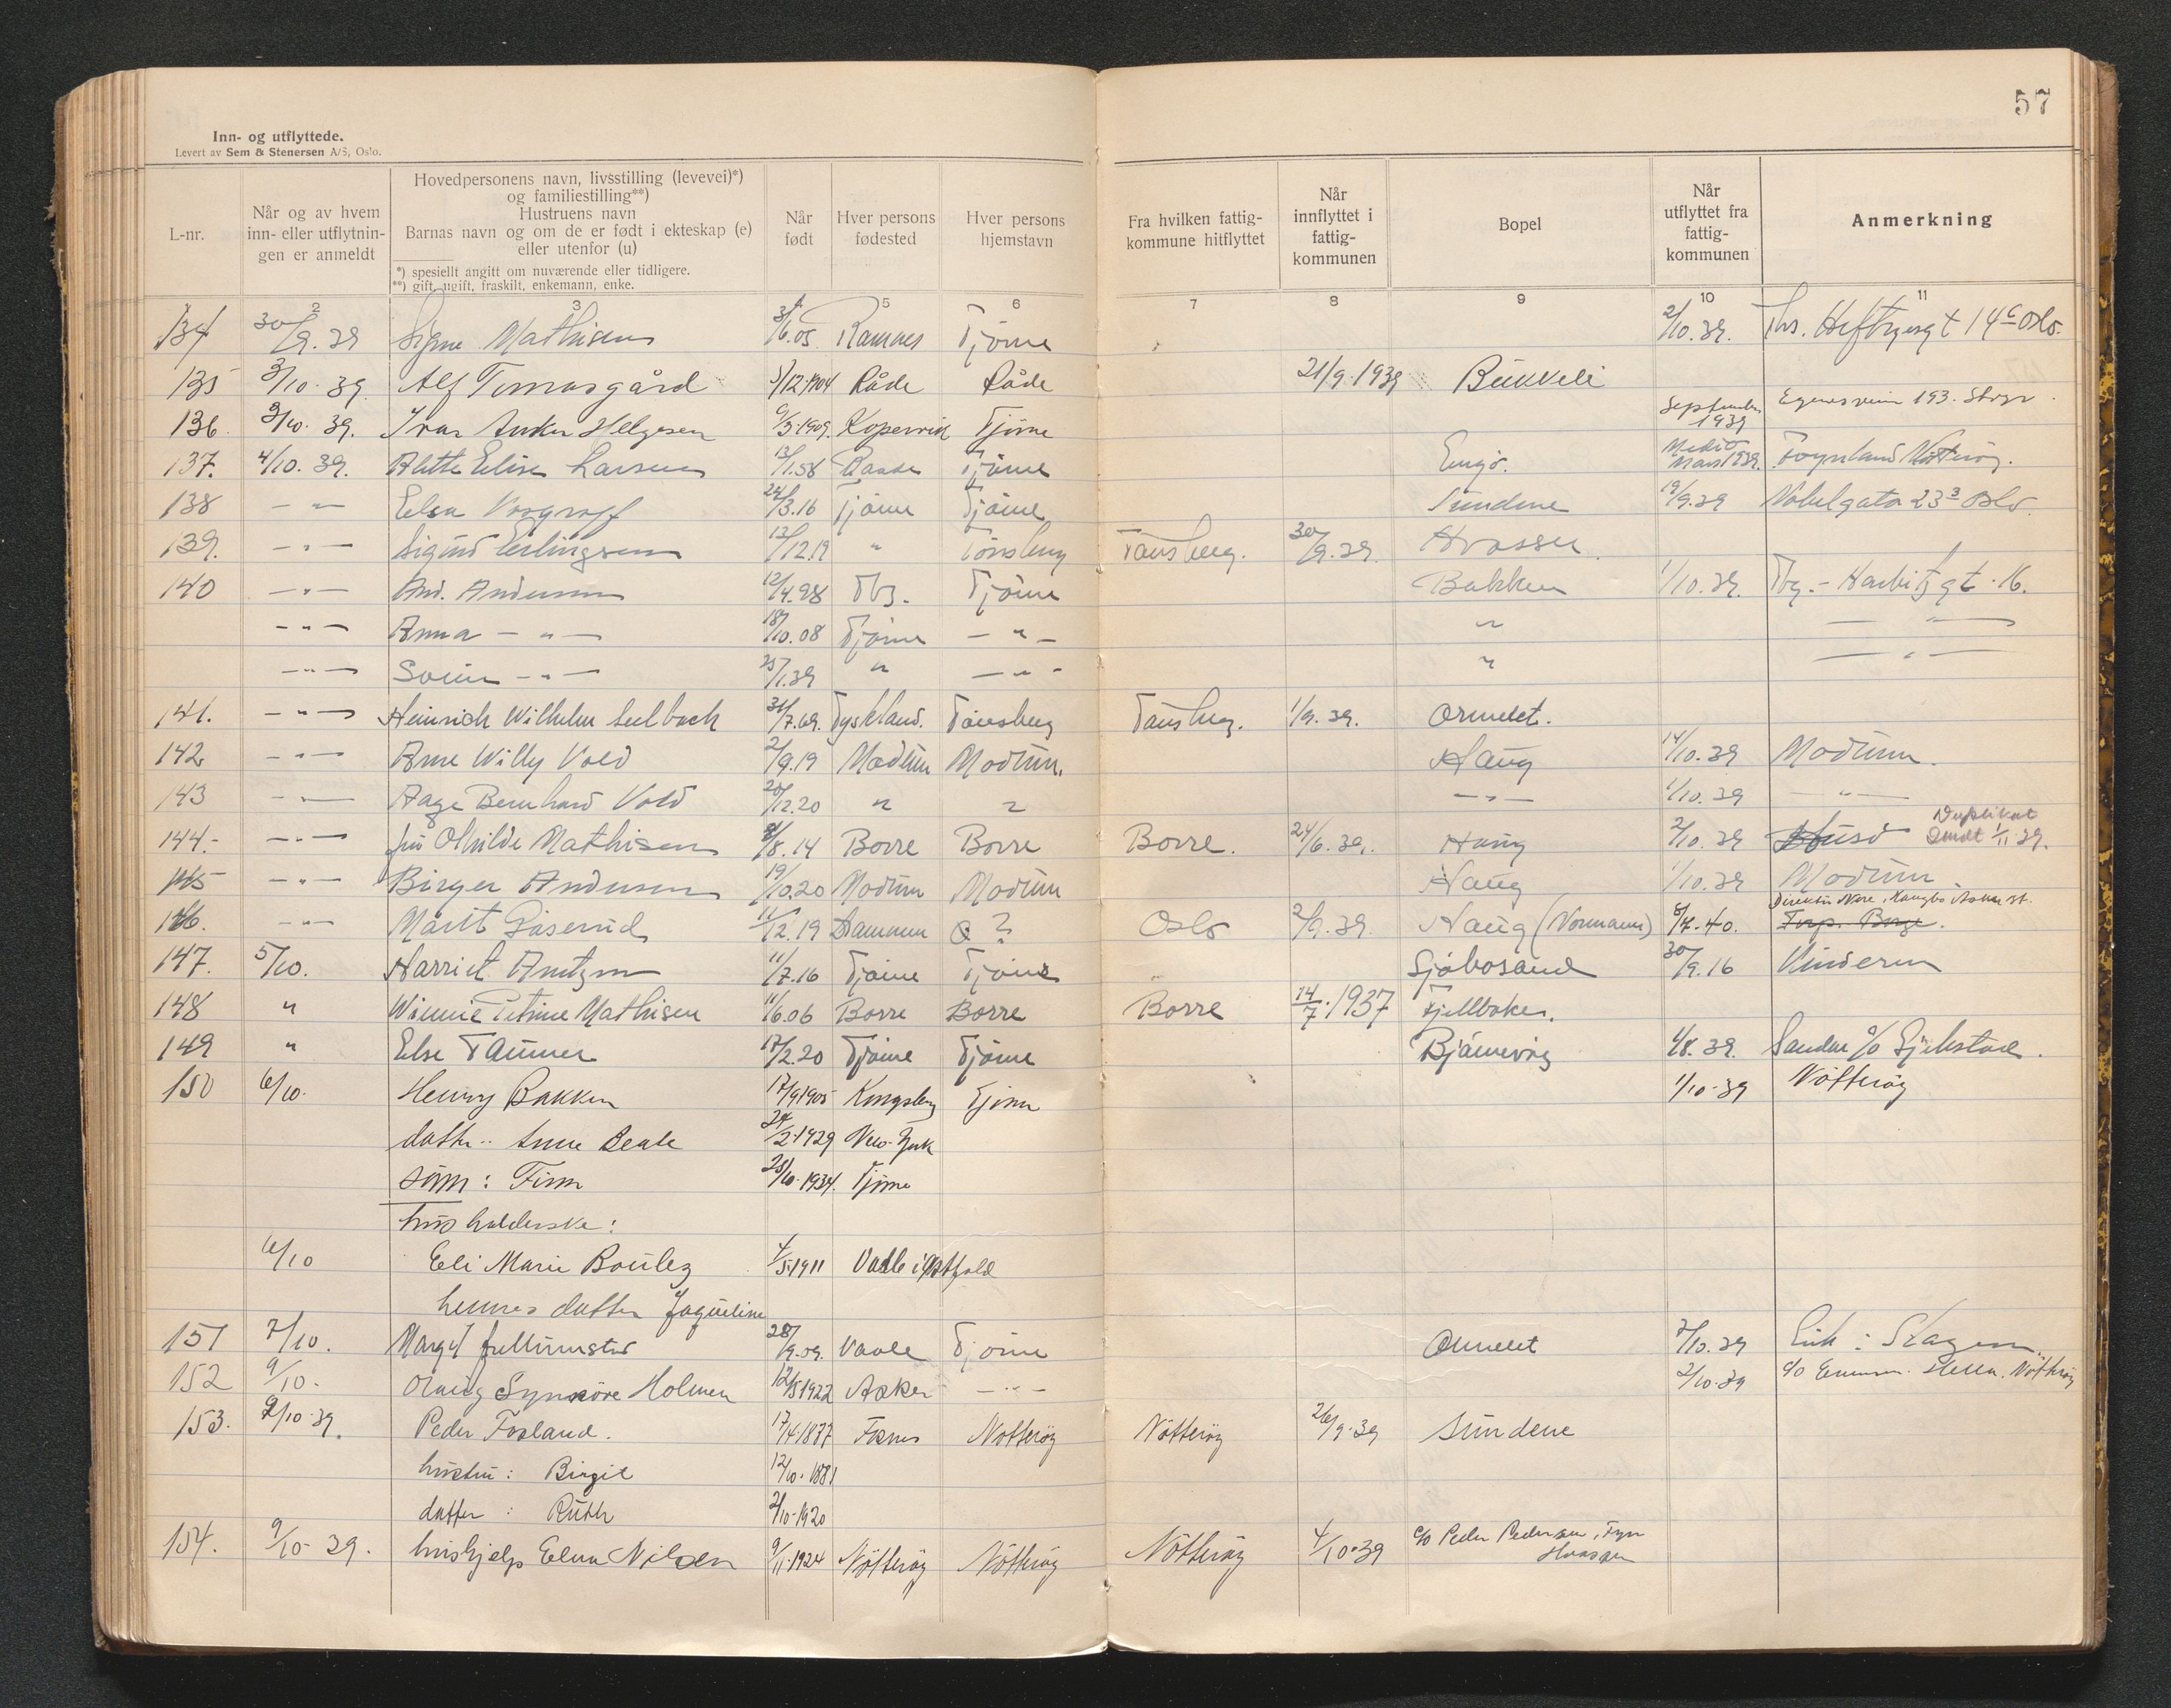 57
Inn- og utflyttede.
Levert av Sem & Stenersen A/S, Oslo.
L-nr.
Når og av hvem inn- eller utflytnin- gen er anmeldt
Hovedpersonens navn, livsstilling (levevei)*)
og familiestilling**)
Hustruens navn
Barnas navn og om de er født i ekteskap (e)
eller utenfor (u)
*) spesiellt angitt om nuværende eller tidligere.
**) gift, ugift, fraskilt, enkemann, enke.
Når født
Hver persons fødested
Hver persons hjemstavn
Fra hvilken fattig- kommune hitflyttet
Når innflyttet i fattig- kommunen
Bopel
Når utflyttet fra fattig- kommunen
Anmerkning
2 3 4 5 6 7 8 9 10 11
134 30/9.39 Signe Mathisen 3/6.05 Ramnes Tjöme 2/10.39. Ths. Heftyesgt 14c Oslo.
135 3/10.39. Alf Tomasgård 5/12.1904 Råde Råde 21/9.1939 Bükkeli
136. 3/10.39. Ivar Anker Helgesen 9/3.1909. Kopervik Tjöme September 1939 193.
137. 4/10.39. Alette Elise Larsen 13/1.58 Tjöme Engö. Medio Mars 1939. Föynland Nötteröy.
138 -"- Elsa 24/3.16 Tjöme Tjöme Sundene 19/9.39 Nobelgata 23 3 Oslo.
139. -"- Sigurd Erlingsen 13/12.19 " Tönsberg Tönsberg. 30/9.39. Hvasser.
140 -"- And. Andersen 12/4.98 Tbg. Tjöme Bakken 1/10.39. Tbg. - Harbitzgt. 16.
-"- Anna -"- 18/10.08 Tjöme -"- " -"-
-"- Svein -"- 25/1.39 " -"- " -"-
141. -"- Heinrich Wilhelm Seelbach 31/7.69. Tyskland. Tönsberg Tönsberg. 1/9.39. Ormelet.
142 -"- Arne Willy Vold 2/9.19 Modüm Modüm. Haüg 14/10.39 Modüm.
143 -"- Aage Bernhard Vold 20/12.20 " " -"- 1/10.39 -"-
144.- -"- frü Othilde Mathisen 8/8.14 Borre Borre Borre. 24/6.39. Haüg 2/10.39 Duplikat sendt 1/11.39.
145 -"- Birger Andersen 19/10.20 Modüm Modüm Haüg 1/10.39 Modüm
146. -"- Marit Gåserud 11/12.19 Drammen ? Oslo 2/9.39. Haüg (Normann) 8/7.40. Torp. Borge.
147. 5/10. Harriet Arntzen 11/7.16 Tjöme Tjöme Sjöbosand 30/9.16 Vinderen
148 " Winnie Petrine Mathisen 11/6.06 Borre Borre Borre 14/7.1937 Fjellbakken.
149 " Else Taumer 17/2.20 Tjöme Tjöme Bjärnevåg 1/8.39. Sandar c/o Gjelstad.
150 6/10. Henry Bakken 17/9.1905 Kongsberg Tjöme 1/10.39 Nötteröy
datter: Anne Beate 24/2.1929 New-York
sönn: Finn 28/10.1934. Tjöme
husholderske:
6/10 Eli Marie Boulez 4/5.1911 Vaale i Vestfold
hennes datter Jaqueline
151 7/10. Margit Gullimstad 28/9.09. Vaale Tjöme Ormelet 7/10.39 Eik: Skagen.
152 9/10. Synnöve Holmen 12/5.1922 Asker -"- 2/10.39 c/o Nötteröy
153. 9/10.39. Peder Fosland. 17/4.1877 Nötteröy Nötteröy 26/9.39 Sündene
hustru: Birgit 12/10.1881
datter: Rüth 2/10.1920
154. 9/10-39. hüshjelp Elna Nilsen 9/11.1924 Nötteröy Nötteröy Nötteröy 4/10.39 c/o Peder Pedersen, Fyn Hvasser